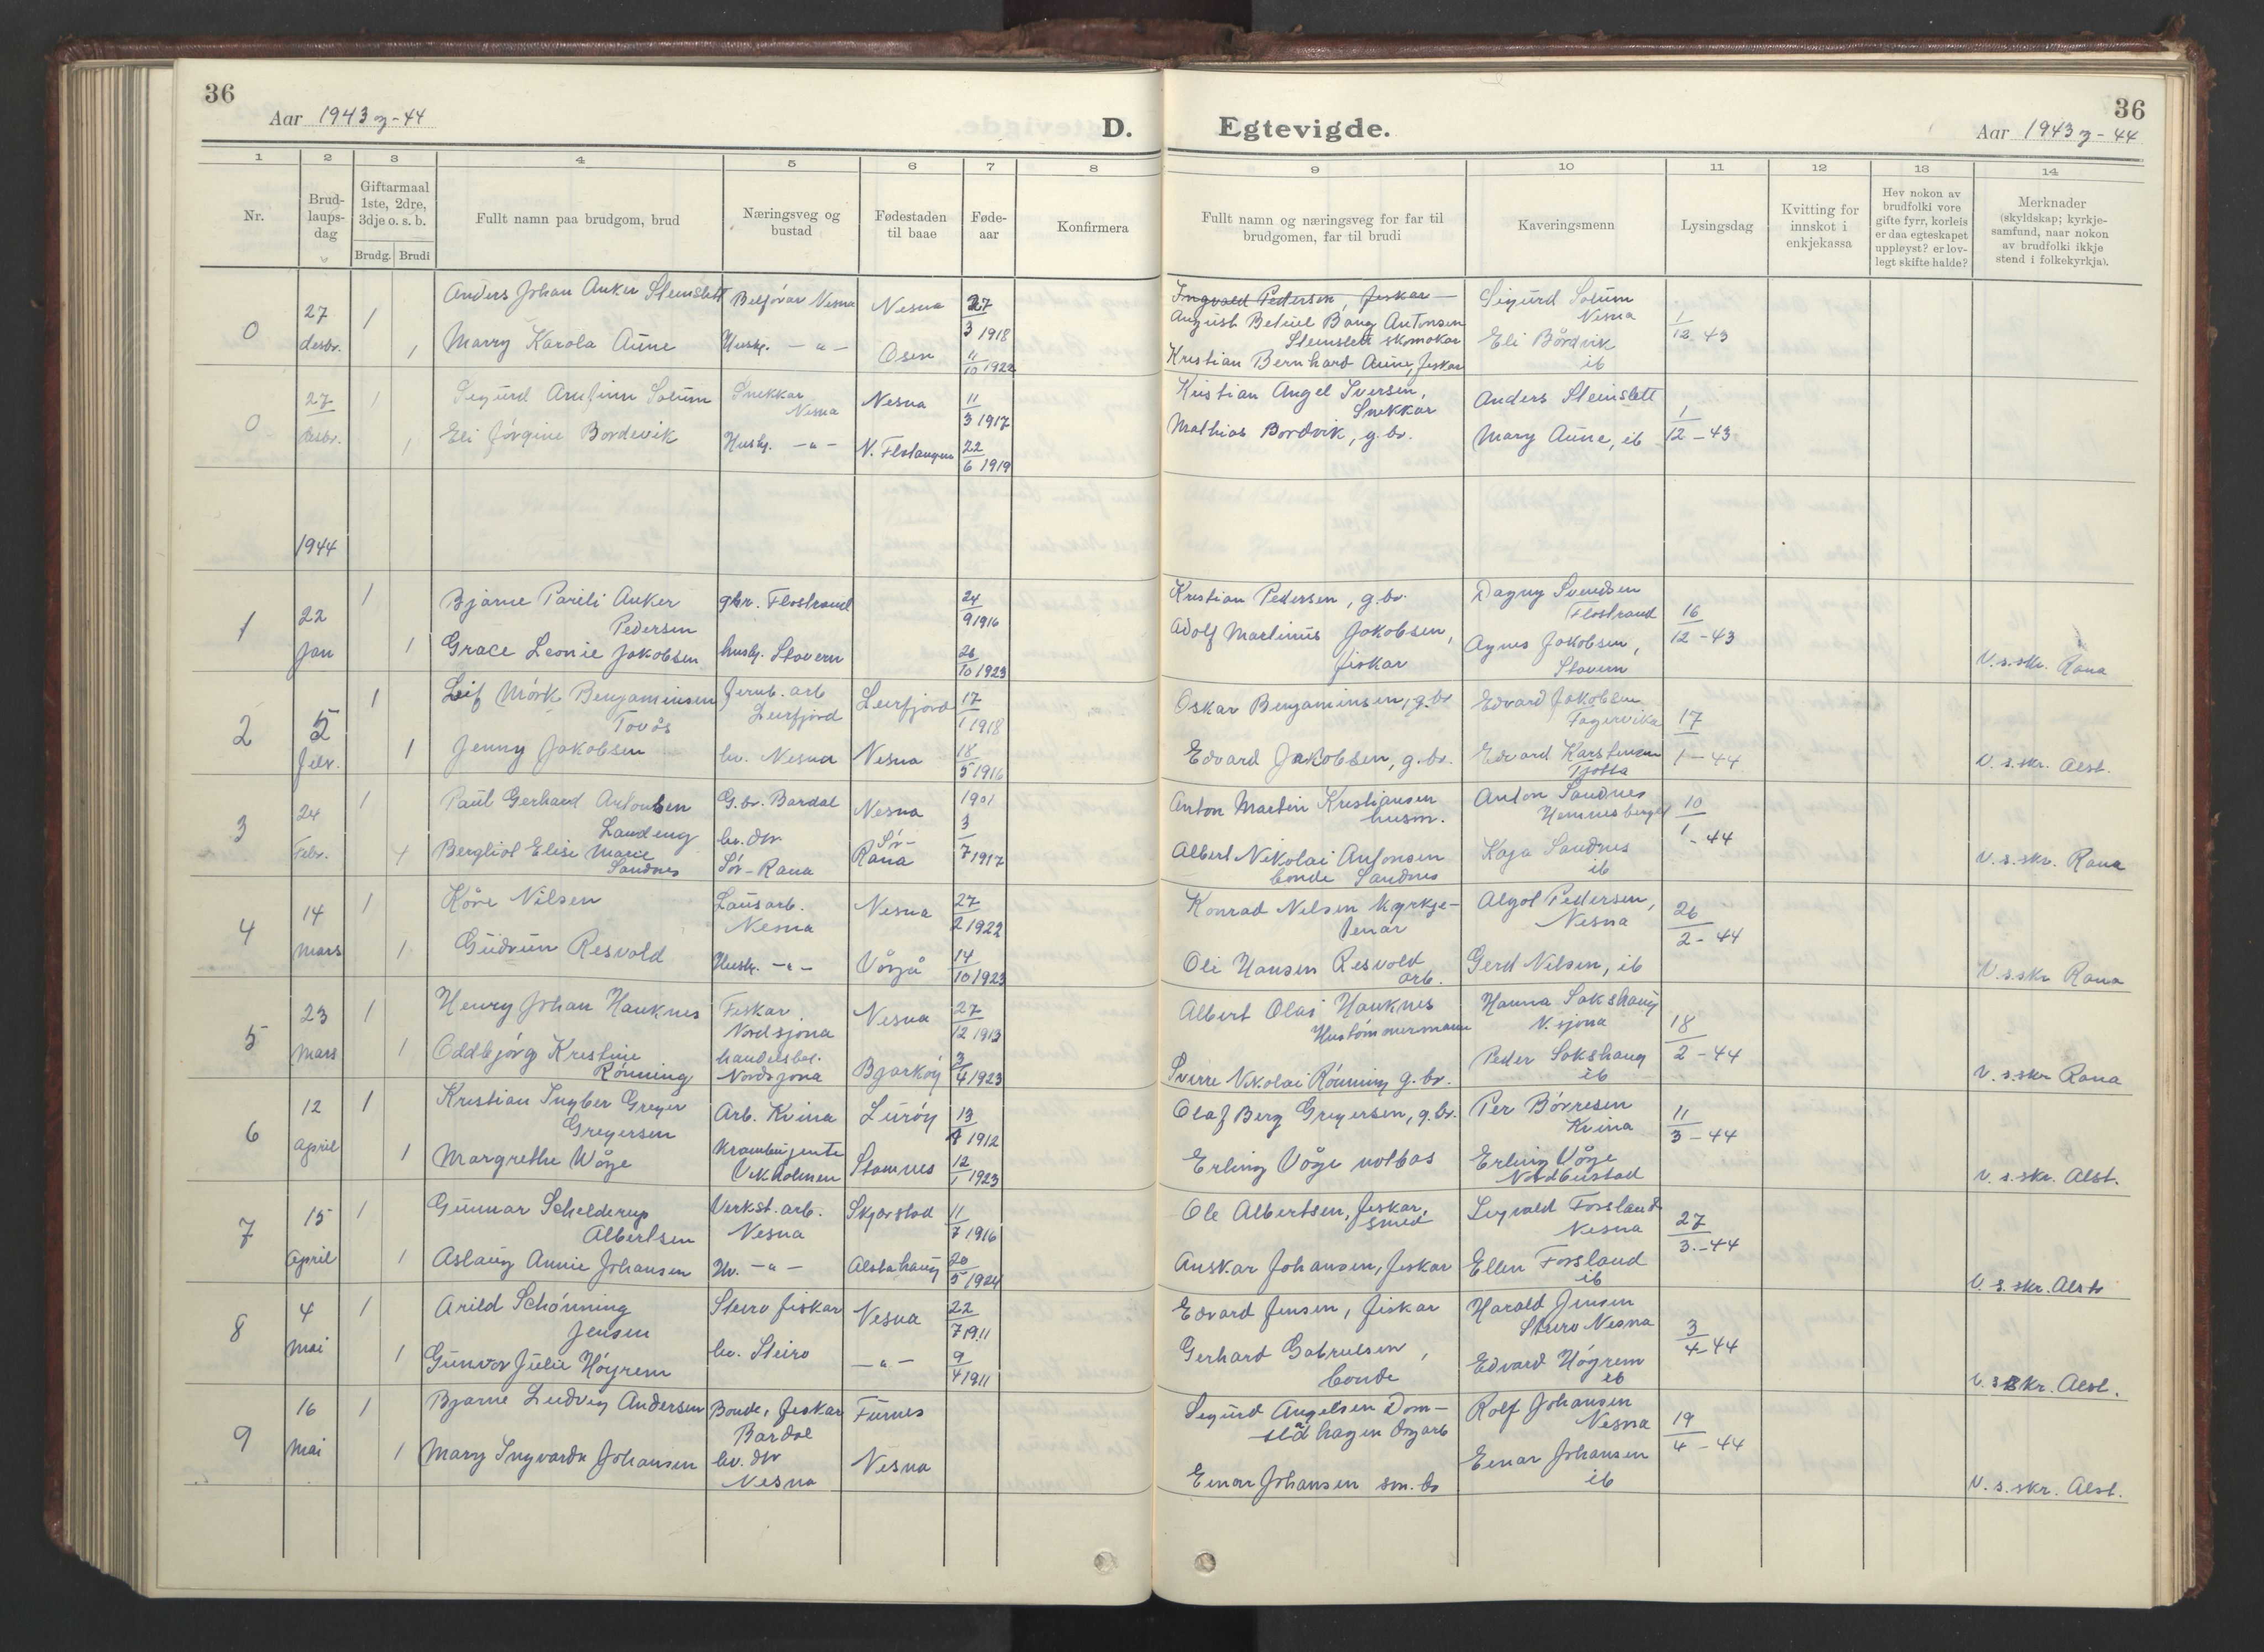 36
Aar 1943 og -44
D.
Egtevigde.
36
Aar 1943 og -44
1 2 3 4 5 6 7 8 9 10 11 12 13 14
Nr.
Brud-
laups-
dag
Giftarmaal
1ste, 2dre,
3dje o. s. b.
Brudg. Brudi
Fullt namn paa brudgom, brud
Næringsveg og
bustad
Fødestaden
til baae
Føde-
aar
Konfirmera
Fullt namn og næringsveg for far til
brudgomen, far til brudi
Kaveringsmenn
Lysingsdag
Kvitting for
innskot i
enkjekassa
Hev nokon av
brudfolki vore
gifte fyrr, korleis
er daa egteskapet
uppløyst? er lov-
legt skifte halde?
Merknader
(skyldskap; kyrkje-
samfund, naar nokon
av brudfolki ikkje
stend i folkekyrkja).
0
27
desbr.
1
Anders Johan Anker Steinslett
Nesna
Nesna
27
3 1918
1
Marry Karola Aune
Husbg. -"-
Osen
11
10 1922
Ingvald Pedersen, fiskar -
August Betuel Bang Antonsen
Steinslett skomakar
Kristian Bernhard Aune, fiskar
Sigurd Solum
Nesna
Eli Bördvik
ib
1
12 43
0
27
desbr.
1
Sigurd Arnfinn Solum
Snekkar
Nesna
Nesna
11
3 1917
1
Eli Jörgine Bordevik
Husbg. -"-
22
6 1919
Kristian Angel Iversen,
Snekkar
Mathias Bordvik, g.br.
Anders Steinslett
Mary Aune, ib
1
12 - 43
1944
1
22
Jan
1
Bjarne Pareli Anker
Pedersen
gbr. Flostrand
24
9 1916
1
Grace Leonie Jakobsen
husbg. Stavern
26
10 1923
Kristian Pedersen, g.br.
Adolf Martinus Jakobsen,
fiskar
Dagny Svendsen
Flostrand
Agnes Jakobsen,
Stavern
16
12 - 43
V.s.skr. Rana
2
5
febr.
1
Leif Mörk Benjaminsen
Tovås
Jernb. arb
Leirfjord
Leirfjord
17
1 1918
1
Jenny Jakobsen
hv. Nesna
Nesna
18
5 1916
Oskar Benjaminsen, g.br
Edvard Jakobsen, g.br.
Edvard Jakobsen
Fagervika
Edvard Karstensen
Tjötta
17
1 - 44
V.s.skr. Alst.
3
24
Febr.
1
Paul Gerhard Antonsen
Landeng
G.br. Bardal
Nesna
1901
1
Bergliot Elise Marie
Sandnes
hv. Dtr
Sör-Rana
Sör-
Rana
3
7 1917
Anton Martin Kristiansen
husm.
Albert Nikolai Antonsen
bonde Sandnes
Anton Sandnes
Hemnesberget
Kaja Sandnes
ib
10
1 - 44
V.s.skr. Rana
4
14
Mars
1
Kåre Nilsen
Lausarb.
Nesna
Nesna
27
2 1922
1
Gudrun Resvold
Husbg. -"-
Vågå
14
10 1923
Konrad Nilsen kyrkje-
tenar
Oli Hansen Resvold
arb.
Algot Pedersen,
Nesna
Gerd Nilsen, ib
26
2 - 44
V.s.skr Rana
5
23
Mars
1
Henry Johan Hauknes
Fiskar
Nordsjona
Nesna
27
12 1913
1
Oddbjörg Kristine
Rönning
handelsbet.
Nordsjona
Bjarköy
3
4 1923
Albert Olai Hauknes
Hustömmermann
Sverre Nikolai Rönning g.br.
Hanna Sakshaug
N.sjona
Peder Sakshaug
ib
18
2 - 44
V.s.skr Rana
6
12
April
1
Kristian Ingber Greger
Gregersen
Arb. Kvina
Luröy
13
1912
1
Margrethe Våge
Krambujente
Vikholmen
Stamnes
12
1 1923
Olaf Berg Gregersen, g.br.
Erling Våge notbas
Per Börresen
Kvina
Erling Våge
11
3 - 44
V.s.skr. Alst.
7
15
April
1
Gunnar Schelderup
Albertsen
Verkst.arb.
Nesna
Skjerstad
11
7 1916
1
Aslaug Annie Johansen
Hv. -"-
Alstahaug
20
5 1924
Ole Albertsen, fiskar,
smed
Anskar Johansen, fiskar
Sigvald Forsland
Nesna
Ellen Forsland
ib
27
3.-44
V.s.skr. Alst
8
4
Mai
1
Arild Schönning
Jensen
Steiro fiskar
Nesna
22
7 1911
1
Gunvor Julie Höyrem
hv. Steiro
-"-
9
4 1911
Edvard Jensen, fiskar
Gerhard Gabrielsen,
bonde
Harald Jensen
Steiro Nesna
Edvard Höyrem
ib
3
4-44
V.s.skr. Alst.
9
16
Mai
1
Bjarne Ludvig Andersen
Bonde, fiskar
Bardal
Furnes
1
Mary Ingvarda Johansen
hv. Dtr
Nesna
Nesna
Sigurd Angelsen Dom-
stadhagen dagarb
Einar Johansen sm.br
Rolf Johansen
Nesna
Einar Johansen
ib
19
4 - 44
V.s.skr. Alst.